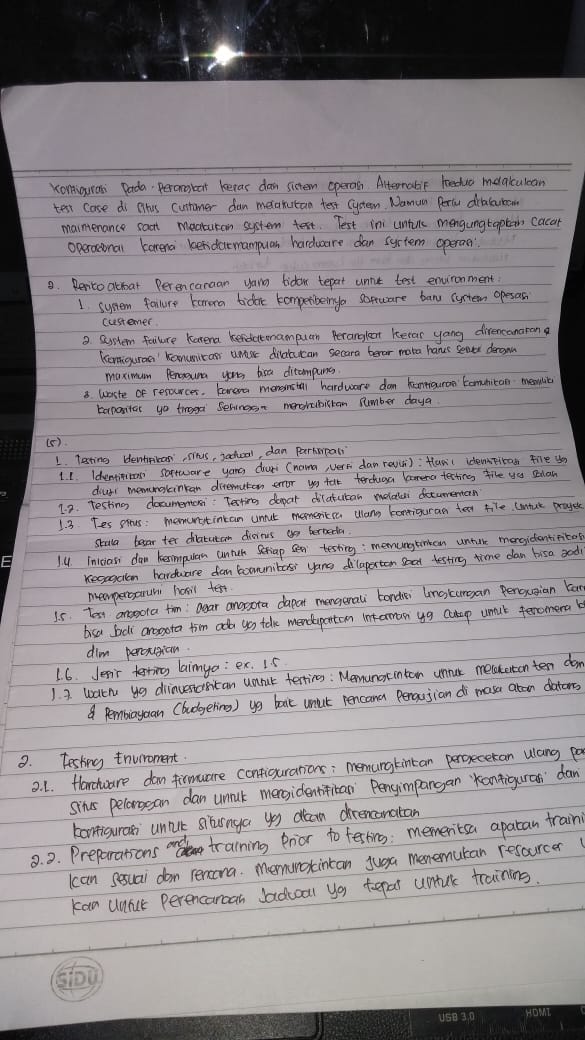 Konfigurasi pada perangkat keras dan sistem operasi Alternatif kedua melakukan
test case di situs customer dan melakukan test system. Namun perlu dilakukan
maintenance saat melakukan system test. Test ini untuk mengungkapkan cacat
operasional karena ketidakmampuan hardware dan system operasi.
2. akibat Perencanaan yang tidak tepat untuk test environment :
1. System failure karena tidak software baru system operasi
customer.
2. System failure karena ketidakmampuan Perangkat keras yang direncanakan &
konfigurasi komunikasi untuk dilakukan secara benar maka harus sesuai dengan
maximum pengguna yang bisa ditampung.
3. Waste of resources. karena menginstal hardware dan konfigurasi komunikasi memiliki
kapasitas yg tinggi sehingga menghabiskan sumber daya.
(5).
1. Testing identifikasi, situs, jadwal, dan partisipasi
1.1. Identifikasi software yang diuji (nama, versi dan revisi) : Hasil identifikasi file yg
diuji memungkinkan ditemukan error yg tdk terduga karena testing file yg salah
1.2. Testing documentasi : Testing dapat dilakukan melalui documentan
1.3 Tes situs : memungkinkan untuk memeriksa ulang konfigurasi test file. Untuk proyek
skala besar tes dilakukan disitus yg berbeda.
1.4. Inisiasi dan kesimpulan untuk setiap sesi testing : memungkinkan untuk mengidentifikasi
kegagalan hardware dan komunikasi yang dilaporkan saat testing time dan bisa jadi
mempengaruhi hasil test.
1.5. Test anggota tim : agar anggota dapat mengenali kondisi lingkungan Pengujian
bisa jadi anggota tim ada yg tdk mendapatkan informasi yg cukup untuk fenomena
dlm pengujian.
1.6. Jenis testing lainnya : ex. 1.5
1.7 Waktu yg diinvestasikan untuk testing : Memungkinkan untuk melakukan test dan
& Pembiayaan (budgeting) yg baik untuk rencana Pengujian di masa akan datang
2. Testing Enviroment.
2.1. Hardware dan firmware configurations : memungkinkan pengecekan ulang
situs pelanggan dan untuk mengidentifikasi Penyimpangan konfigurasi dan
konfigurasi untuk situsnya yg akan direncanakan
2.2. Preparations and training prior to testing : memeriksa apakah
kan sesuai dgn rencana. Memungkinkan juga menemukan resources
kan untuk Perencanaan Jadwal yg tepat untuk training.
SIDU
USB 3.0 HDMI
E